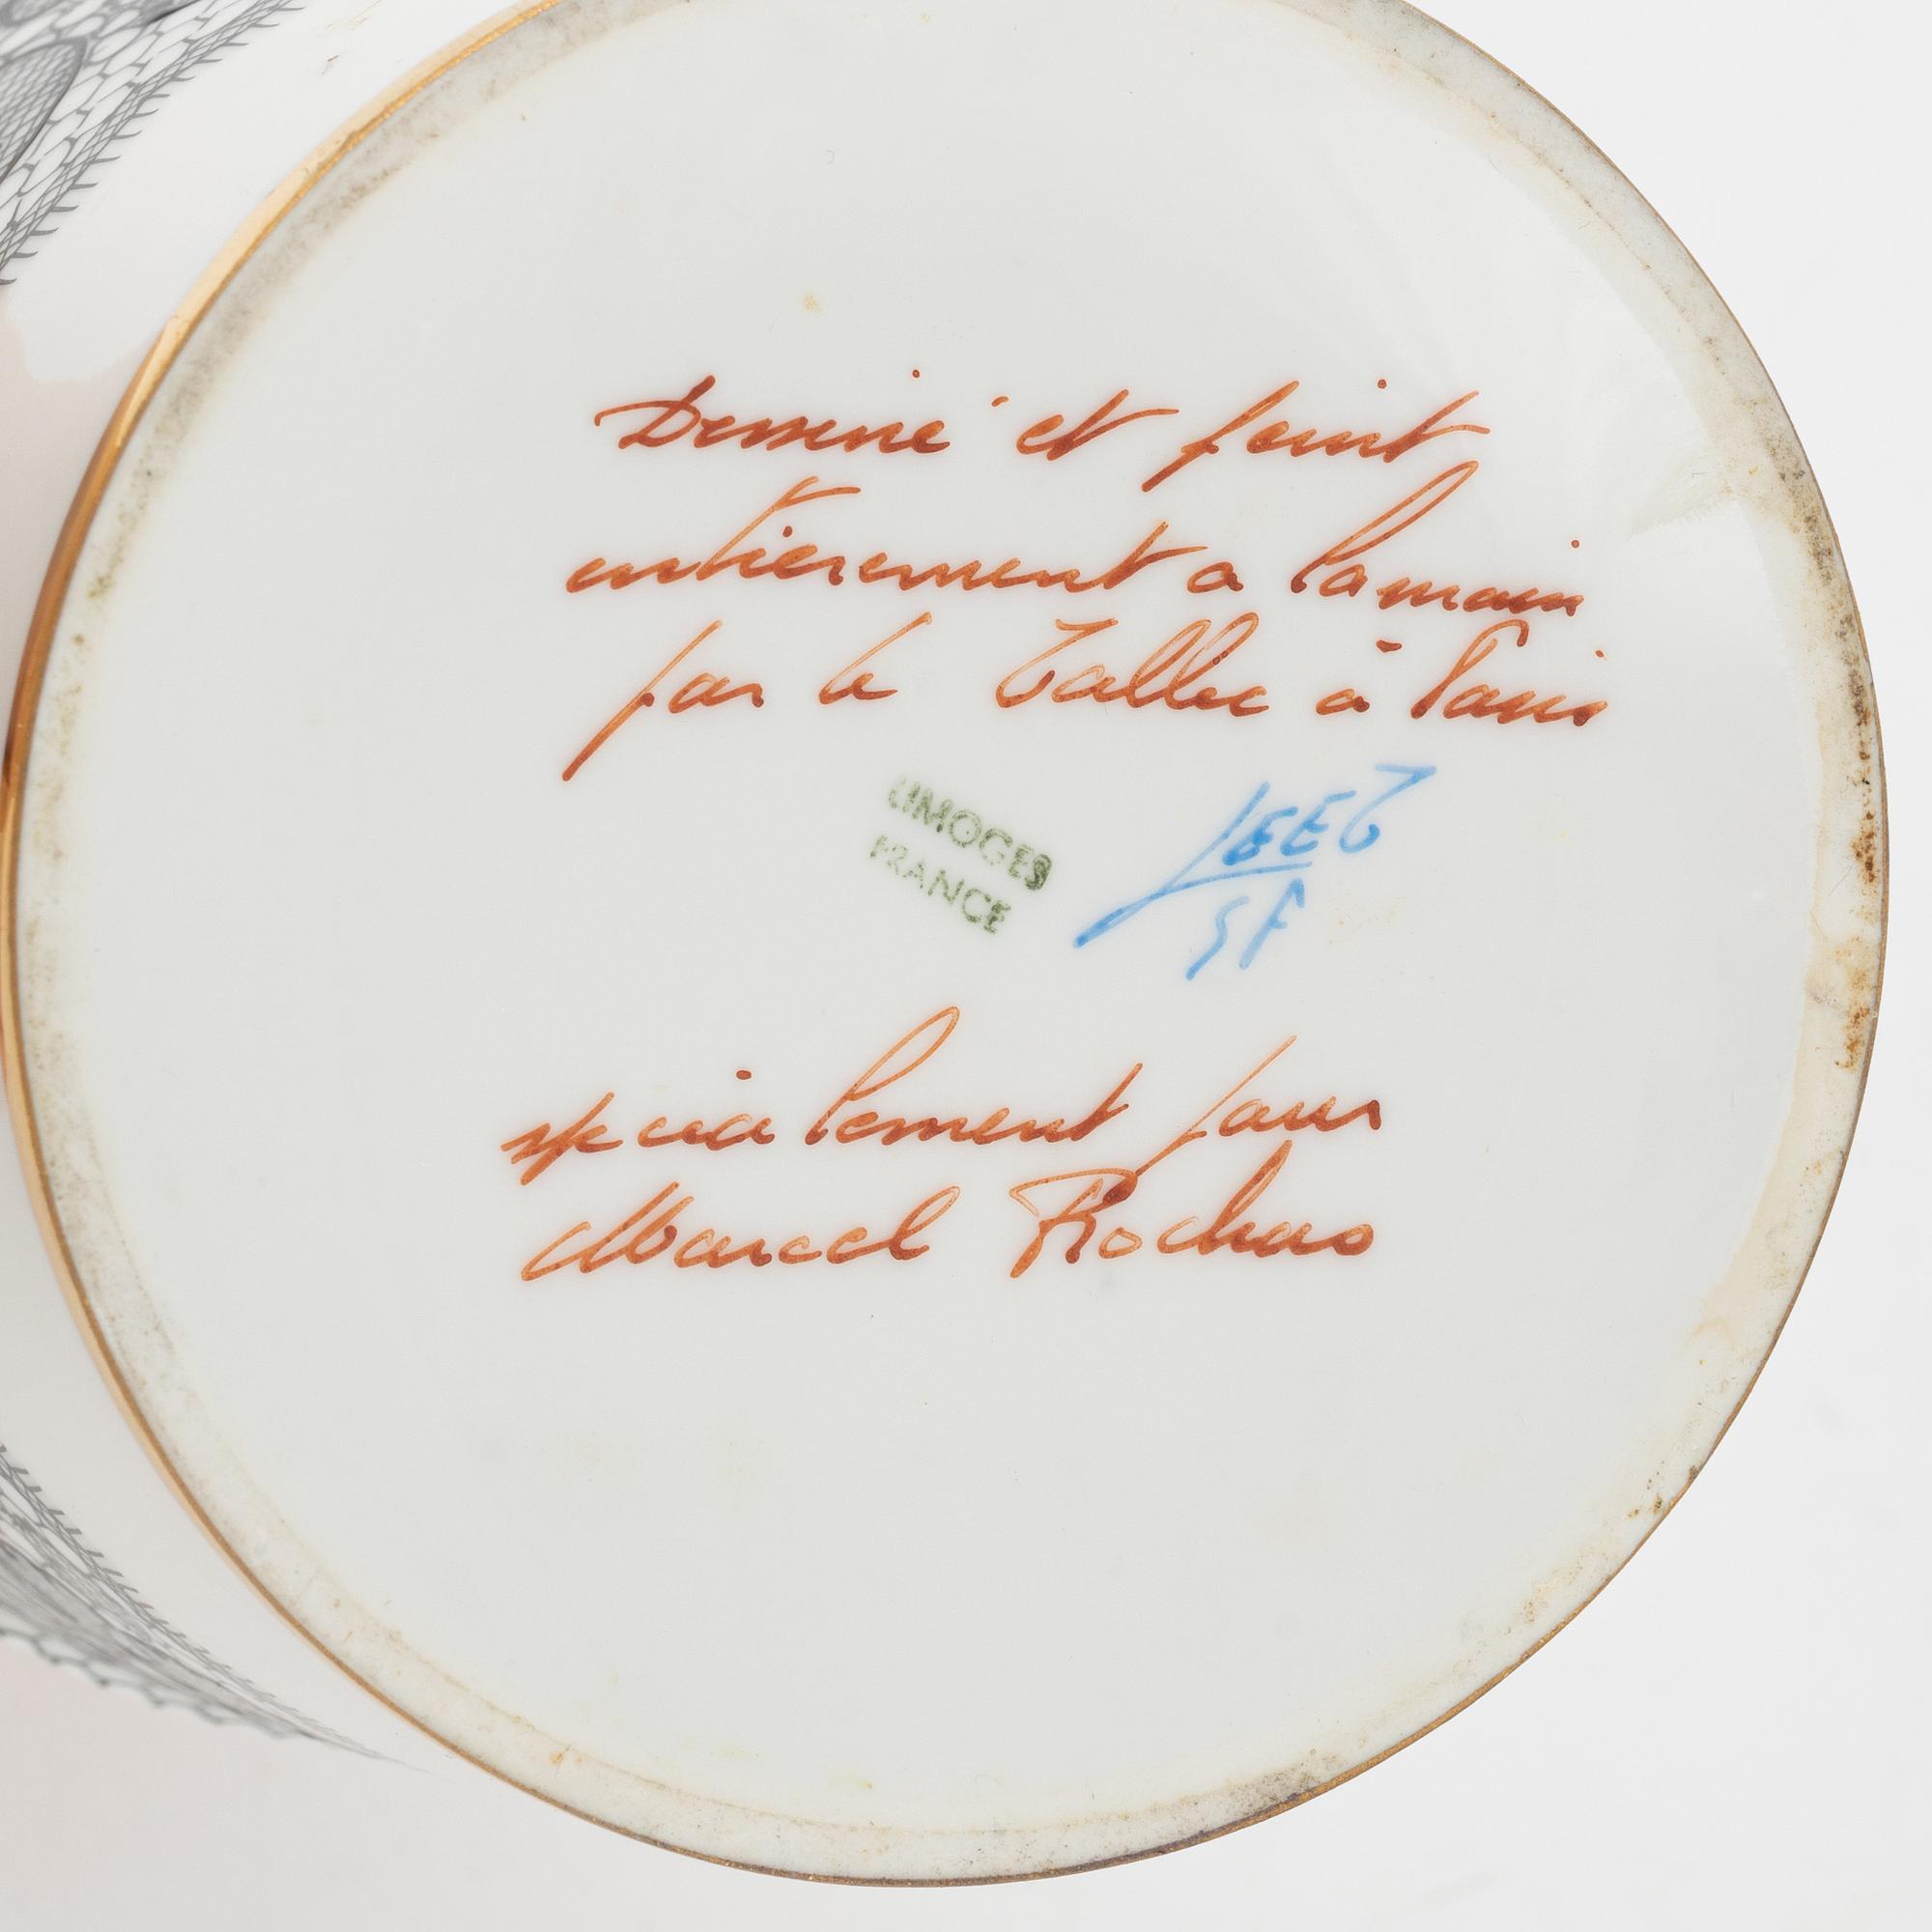 Dessiné et peint
entierement a la main
par le Tallec à Paris
LIMOGES
FRANCE
specialement pour
Marcel Rochas